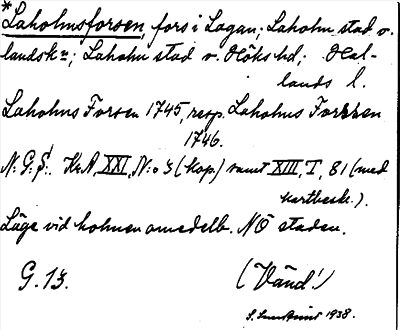 *Laholmsforsen, fors i Lagan; Laholm stad o.
landsk:n; Laholm stad o. Höks hd; Hal-
lands l.
Laholms Forsen 1745, resp. Laholms Forssen
1746.
N: G: S: KrA, XXI, N:o 3 (kop.) samt XIII, I, 81 (med
kartbesk.).
Läge vid holmen omedelb. NÖ staden.
G. 13. (Vänd!)
S. 1938.